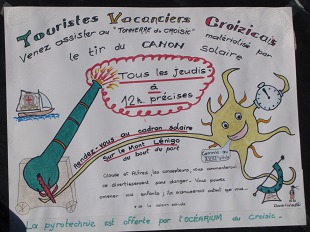 Touristes Vacanciers Croizicais
Venez assister au "TONNERRE du CROISIC" matérialisé par
le tir du CANON solaire
Tous les Jeudis
à
12h. précises
Rendez-vous au cadran solaire
Sur le Mont Lénigo
au bout du port
Claude et Alfred, les concepteurs, vous commenteront
ce divertissement sans danger. Vous pouvez
amener vos enfants ; ils
La pyrotechnie est offerte par l'OCÉARIUM du Croisic.